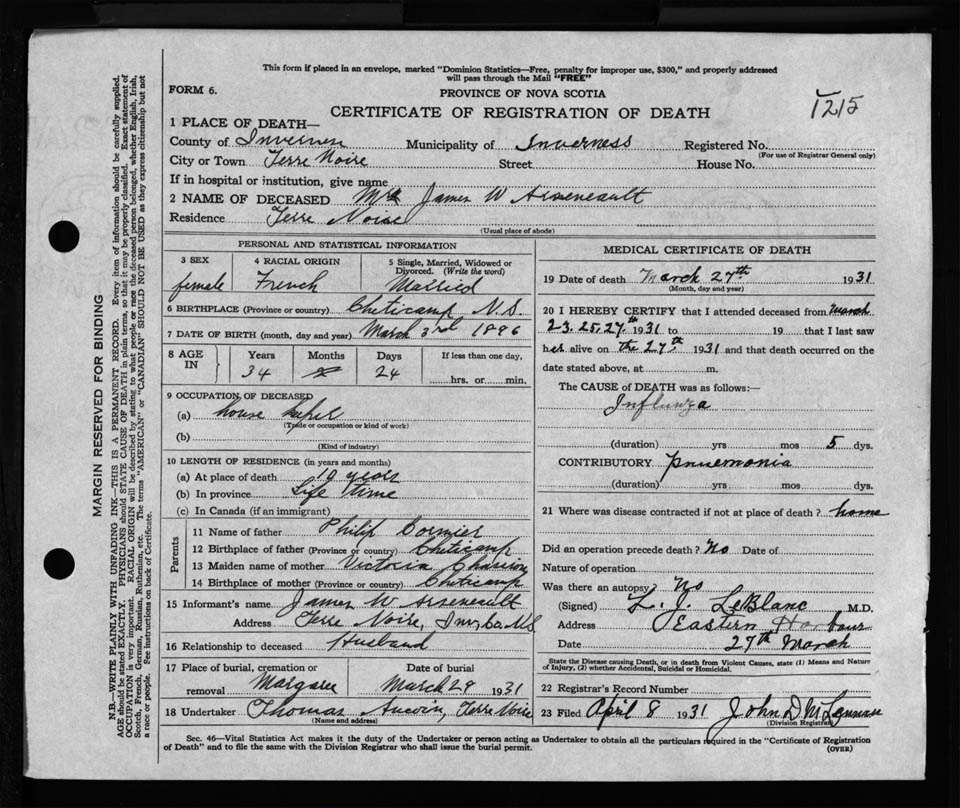 This form if placed in an envelope, marked "Dominion Statistics—Free, penalty for improper use, $300," and properly addressed
will pass through the Mail "FREE"
FORM 6.
PROVINCE OF NOVA SCOTIA
CERTIFICATE OF REGISTRATION OF DEATH
1215
1 PLACE OF DEATH—
County of Inverness Municipality of Inverness Registered No.
(For use of Registrar General only)
City or Town Terre Noire Street House No.
If in hospital or institution, give name
2 NAME OF DECEASED Mrs James W Arseneault
Residence Terre Noire
(Usual place of abode)
PERSONAL AND STATISTICAL INFORMATION
3 SEX 4 RACIAL ORIGIN 5 Single, Married, Widowed or
Divorced. (Write the word)
female French Married
6 BIRTHPLACE (Province or country) Cheticamp N.S.
7 DATE OF BIRTH (month, day and year) March 3rd 1886
8 AGE IN Years Months Days If less than one day,
34 24 hrs. or min.
9 OCCUPATION OF DECEASED
(a) house keper
(Trade or occupation or kind of work)
(b)
(Kind of industry)
10 LENGTH OF RESIDENCE (in years and months)
(a) At place of death 10 years
(b) In province Life time
(c) In Canada (if an immigrant)
Parents
11 Name of father Philip Cormier
12 Birthplace of father (Province or country) Cheticamp
13 Maiden name of mother Victoria Chiasson
14 Birthplace of mother (Province or country) Cheticamp
15 Informant's name James W Arseneault
Address Terre Noire, Inv. Co. N.S
16 Relationship to deceased Husband
17 Place of burial, cremation or Date of burial
removal Margaree March 29 1931
18 Undertaker Thomas Aucoin, Terre Noire
(Name and address)
MEDICAL CERTIFICATE OF DEATH
19 Date of death March 27th 1931
(Month, day and year)
20 I HEREBY CERTIFY that I attended deceased from March
23. 25. 27th 1931 to 19 that I last saw
her alive on the 27th. 1931 and that death occurred on the
date stated above, at m.
The CAUSE of DEATH was as follows:—
Influnza
(duration) yrs mos 5 dys.
CONTRIBUTORY Pnuemonia
(duration) yrs mos dys.
21 Where was disease contracted if not at place of death? home
Did an operation precede death? No Date of
Nature of operation
Was there an autopsy? No
(Signed) L. J. LeBlanc M.D.
Address Eastern Harbour
Date 27th March
State the Disease causing Death, or in death from Violent Causes, state (1) Means and Nature
of Injury, (2) whether Accidental, Suicidal or Homicidal.
22 Registrar's Record Number
23 Filed April 8 1931 John D McLennan
(Division Registrar)
Sec. 46—Vital Statistics Act makes it the duty of the Undertaker or person acting as Undertaker to obtain all the particulars required in the "Certificate of Registration
of Death" and to file the same with the Division Registrar who shall issue the burial permit.
(OVER)
MARGIN RESERVED FOR BINDING
N.B.—WRITE PLAINLY WITH UNFADING INK—THIS IS A PERMANENT RECORD. Every item of information should be carefully supplied.
AGE should be stated EXACTLY. PHYSICIANS should STATE CAUSE OF DEATH in plain terms, so that it may be properly classified. Exact statement of
OCCUPATION is very important. RACIAL ORIGIN will be described by stating to what people or race the deceased person belonged, whether English, Irish,
Scotch, French, German, Russian, Ruthenian, etc. The terms "AMERICAN" or "CANADIAN" SHOULD NOT BE USED as they express citizenship but not
a race or people. See instructions on back of Certificate.